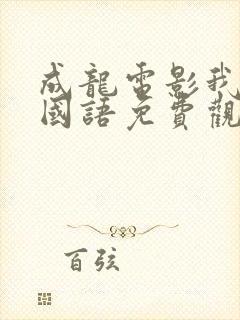 成龍電影我
國語免費觀
百弦